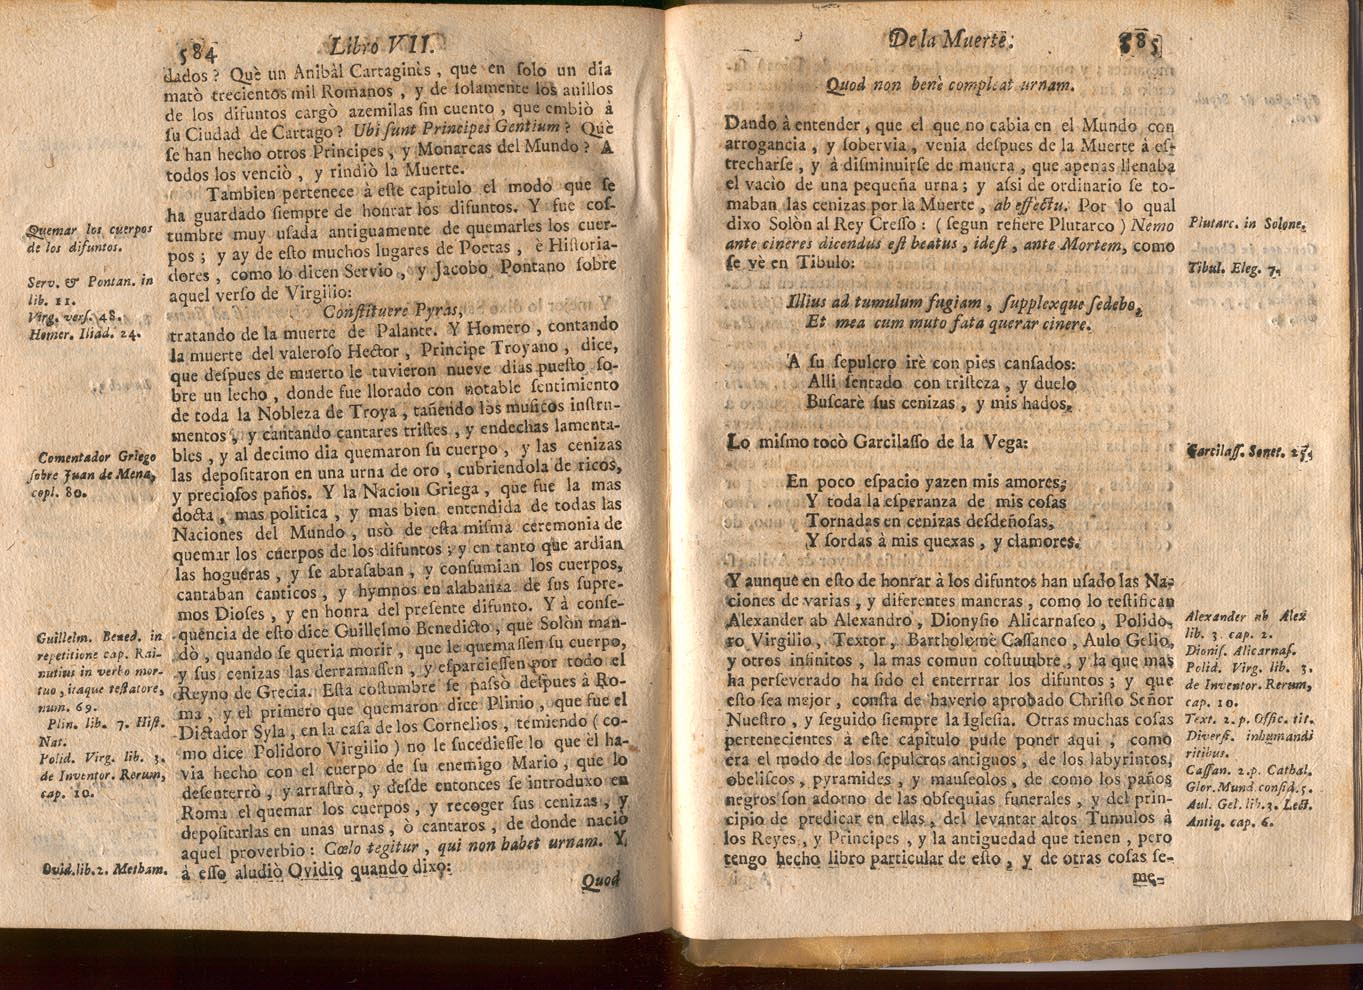 584
Libro VII.
dados? Què un Anibàl Cartaginès, que en ſolo un dia
matò trecientos mil Romanos, y de ſolamente los anillos
de los difuntos cargò azemilas ſin cuento, que embiò à
ſu Ciudad de Cartago? Ubi ſunt Principes Gentium? Què
ſe han hecho otros Principes, y Monarcas del Mundo? A
todos los venciò, y rindiò la Muerte.
Tambien pertenece à eſte capitulo el modo que ſe
ha guardado ſiempre de honrar los difuntos. Y fue coſ-
tumbre muy uſada antiguamente de quemarles los cuer-
pos; y ay de eſto muchos lugares de Poetas, è Hiſtoria-
dores, como lo dicen Servio, y Jacobo Pontano ſobre
aquel verſo de Virgilio:
Conſtituere Pyras,
tratando de la muerte de Palante. Y Homero, contando
la muerte del valeroſo Hector, Principe Troyano, dice,
que deſpues de muerto le tuvieron nueve dias pueſto ſo-
bre un lecho, donde fue llorado con notable ſentimiento
de toda la Nobleza de Troya, tañendo los muſicos inſtru-
mentos, y cantando cantares triſtes, y endechas lamenta-
bles, y al decimo dia quemaron ſu cuerpo, y las cenizas
las depoſitaron en una urna de oro, cubriendola de ricos,
y precioſos paños. Y la Nacion Griega, que fue la mas
docta, mas politica, y mas bien entendida de todas las
Naciones del Mundo, usò de eſta miſma ceremonia de
quemar los cuerpos de los difuntos; y en tanto que ardian
las hogueras, y ſe abraſaban, y conſumian los cuerpos,
cantaban canticos, y hymnos en alabanza de ſus ſupre-
mos Dioſes, y en honra del preſente difunto. Y à conſe-
quencia de eſto dice Guillelmo Benedicto, que Solòn man-
dò, quando ſe queria morir, que le quemaſſen ſu cuerpo,
y ſus cenizas las derramaſſen, y eſparcieſſen por todo el
Reyno de Grecia. Eſta coſtumbre ſe paſsò deſpues à Ro-
ma, y el primero que quemaron dice Plinio, que fue el
Dictador Syla, en la caſa de los Cornelios, temiendo (co-
mo dice Polidoro Virgilio) no le ſucedieſſe lo que èl ha-
via hecho con el cuerpo de ſu enemigo Mario, que lo
deſenterrò, y arraſtrò, y deſde entonces ſe introduxo en
Roma el quemar los cuerpos, y recoger ſus cenizas, y
depoſitarlas en unas urnas, ò cantaros, de donde naciò
aquel proverbio: Cœlo tegitur, qui non habet urnam. Y
à eſſo aludiò Ovidio quando dixo:
Quod
Quemar los cuerpos
de los difuntos.
Serv. & Pontan. in
lib. 11.
Virg. verſ. 48.
Homer. Iliad. 24.
Comentador Griego
ſobre Juan de Mena,
copl. 80.
Guillelm. Bened. in
repetitione cap. Rai-
nutius in verbo mor-
tuo, itaque teſtatore,
num. 69.
Plin. lib. 7. Hiſt.
Nat.
Polid. Virg. lib. 3.
de Inventor. Rerum,
cap. 10.
Ovid. lib. 2. Metham.
De la Muerte.
585
Quod non benè compleat urnam.
Dando à entender, que el que no cabia en el Mundo con
arrogancia, y ſobervia, venia deſpues de la Muerte à eſ-
trecharſe, y à diſminuirſe de manera, que apenas llenaba
el vacìo de una pequeña urna; y aſsi de ordinario ſe to-
maban las cenizas por la Muerte, ab effectu. Por lo qual
dixo Solòn al Rey Creſſo: (ſegun refiere Plutarco) Nemo
ante cineres dicendus eſt beatus, ideſt, ante Mortem, como
ſe vè en Tibulo:
Illius ad tumulum fugiam, ſupplexque ſedebo,
Et mea cum muto fata querar cinere.
A ſu ſepulcro irè con pies canſados:
Alli ſentado con triſteza, y duelo
Buſcarè ſus cenizas, y mis hados.
Lo miſmo tocò Garcilaſſo de la Vega:
En poco eſpacio yazen mis amores,
Y toda la eſperanza de mis coſas
Tornadas en cenizas deſdeñoſas,
Y ſordas à mis quexas, y clamores.
Y aunque en eſto de honrar à los difuntos han uſado las Na-
ciones de varias, y diferentes maneras, como lo teſtifican
Alexander ab Alexandro, Dionyſio Alicarnaſeo, Polido-
ro Virgilio, Textor, Bartholomè Caſſaneo, Aulo Gelio,
y otros infinitos, la mas comun coſtumbre, y la que mas
ha perſeverado ha ſido el enterrrar los difuntos; y que
eſto ſea mejor, conſta de haverlo aprobado Chriſto Señor
Nueſtro, y ſeguido ſiempre la Igleſia. Otras muchas coſas
pertenecientes à eſte capitulo pude poner aqui, como
era el modo de los ſepulcros antiguos, de los labyrintos,
obeliſcos, pyramides, y mauſeolos, de como los paños
negros ſon adorno de las obſequias funerales, y del prin-
cipio de predicar en ellas, del levantar altos Tumulos à
los Reyes, y Principes, y la antiguedad que tienen, pero
tengo hecho libro particular de eſto, y de otras coſas ſe-
me-
Plutarc. in Solone.
Tibul. Eleg. 7.
Garcilaſſ. Sonet.
Alexander ab Alex
lib. 3. cap. 2.
Dioniſ. Alicarnaſ.
Polid. Virg. lib. 3.
de Inventor. Rerum,
cap. 10.
Text. 2. p. Offic. tit.
Diverſ. inhumandi
ritibus.
Caſſan. 2. p. Cathal.
Glor. Mund. conſid. 5.
Aul. Gel. lib. 3. Lect.
Antiq. cap. 6.